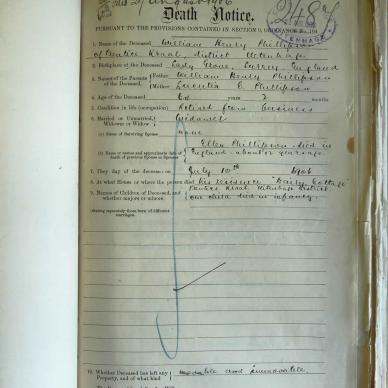 Filed 21 August 1906
2485
ENHAGE
Death Notice.
PURSUANT TO THE PROVISIONS CONTAINED IN SECTION 9, ORDINANCE No. 104
1. Name of the Deceased William Henry Phillipson
of Kraal, district Uitenhage
2. Birthplace of the Deceased East Surrey England
3. Names of the Parents of the Deceased Father William Henry Phillipson
Mother Phillipson
4. Age of the Deceased years 2 months
5. Condition in life (occupation) Retired from business
6. Married or Unmarried, Widower or Widow Widower
(a) Name of Surviving Spouse none
(b) Name or names and approximate date of death of previous Spouse or Spouses Ellen Phillipson died in
England about years ago
7. The day of the decease on July 10th 1906
8. At what House or where the person died his residence "Dairy Cottage"
Kraal Uitenhage District
9. Names of Children of Deceased, and whether majors or minors. one child died in infancy
(Stating separately those born of different marriages.)
10. Whether Deceased has left any Property, and of what kind movable and immovable